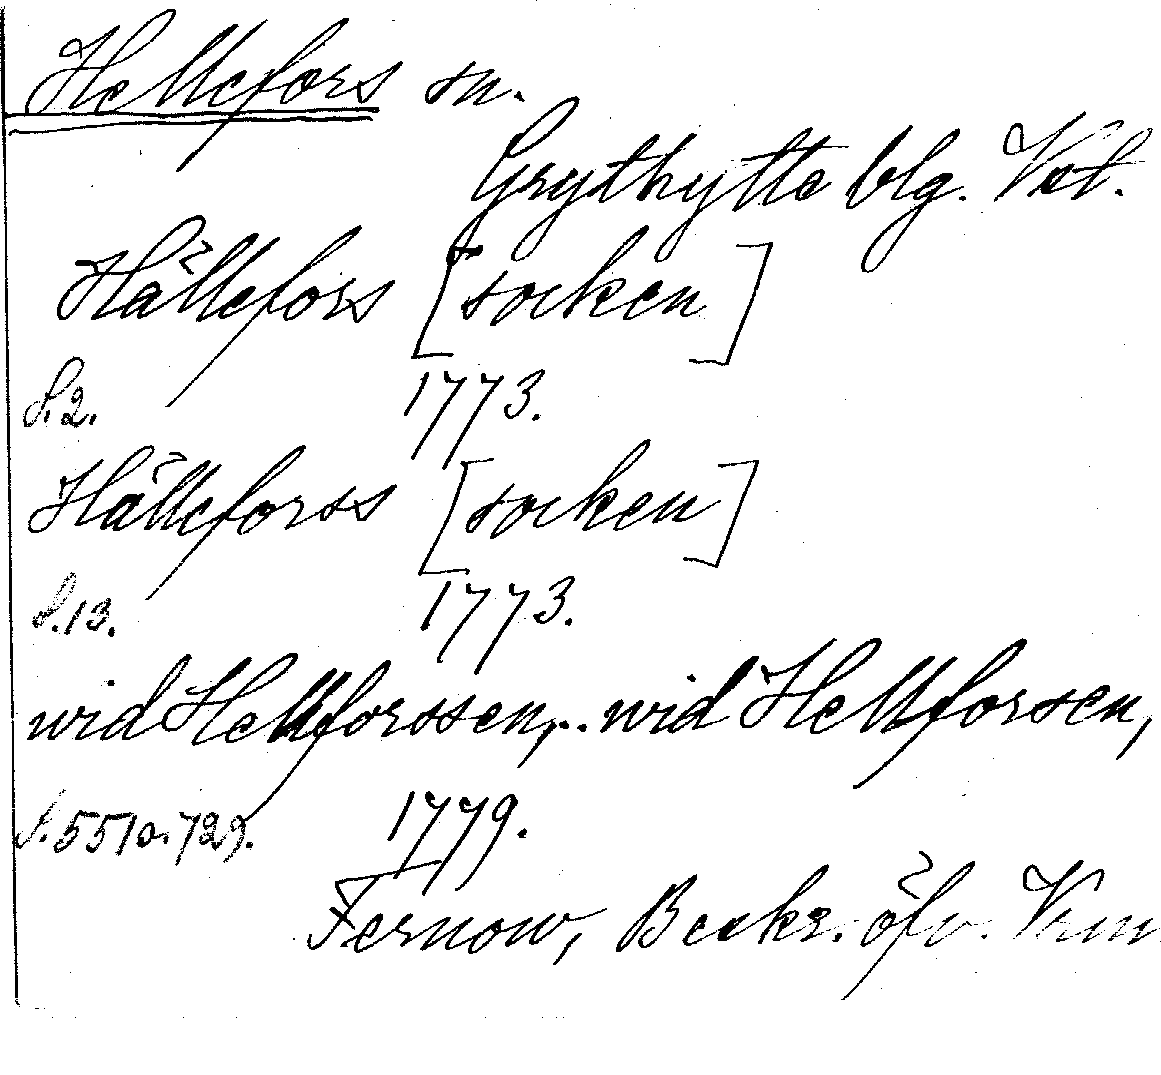 Hellefors sn.
Grythytte blg. Vstm.
Hällefors [socken]
S.2. 1773.
Hälleforss [socken]
S.13. 1773.
wid Hellforssen,.. wid Hellforsen,
S.551 o. 729. 1779.
Fernow, Beskr. öfv. Verm